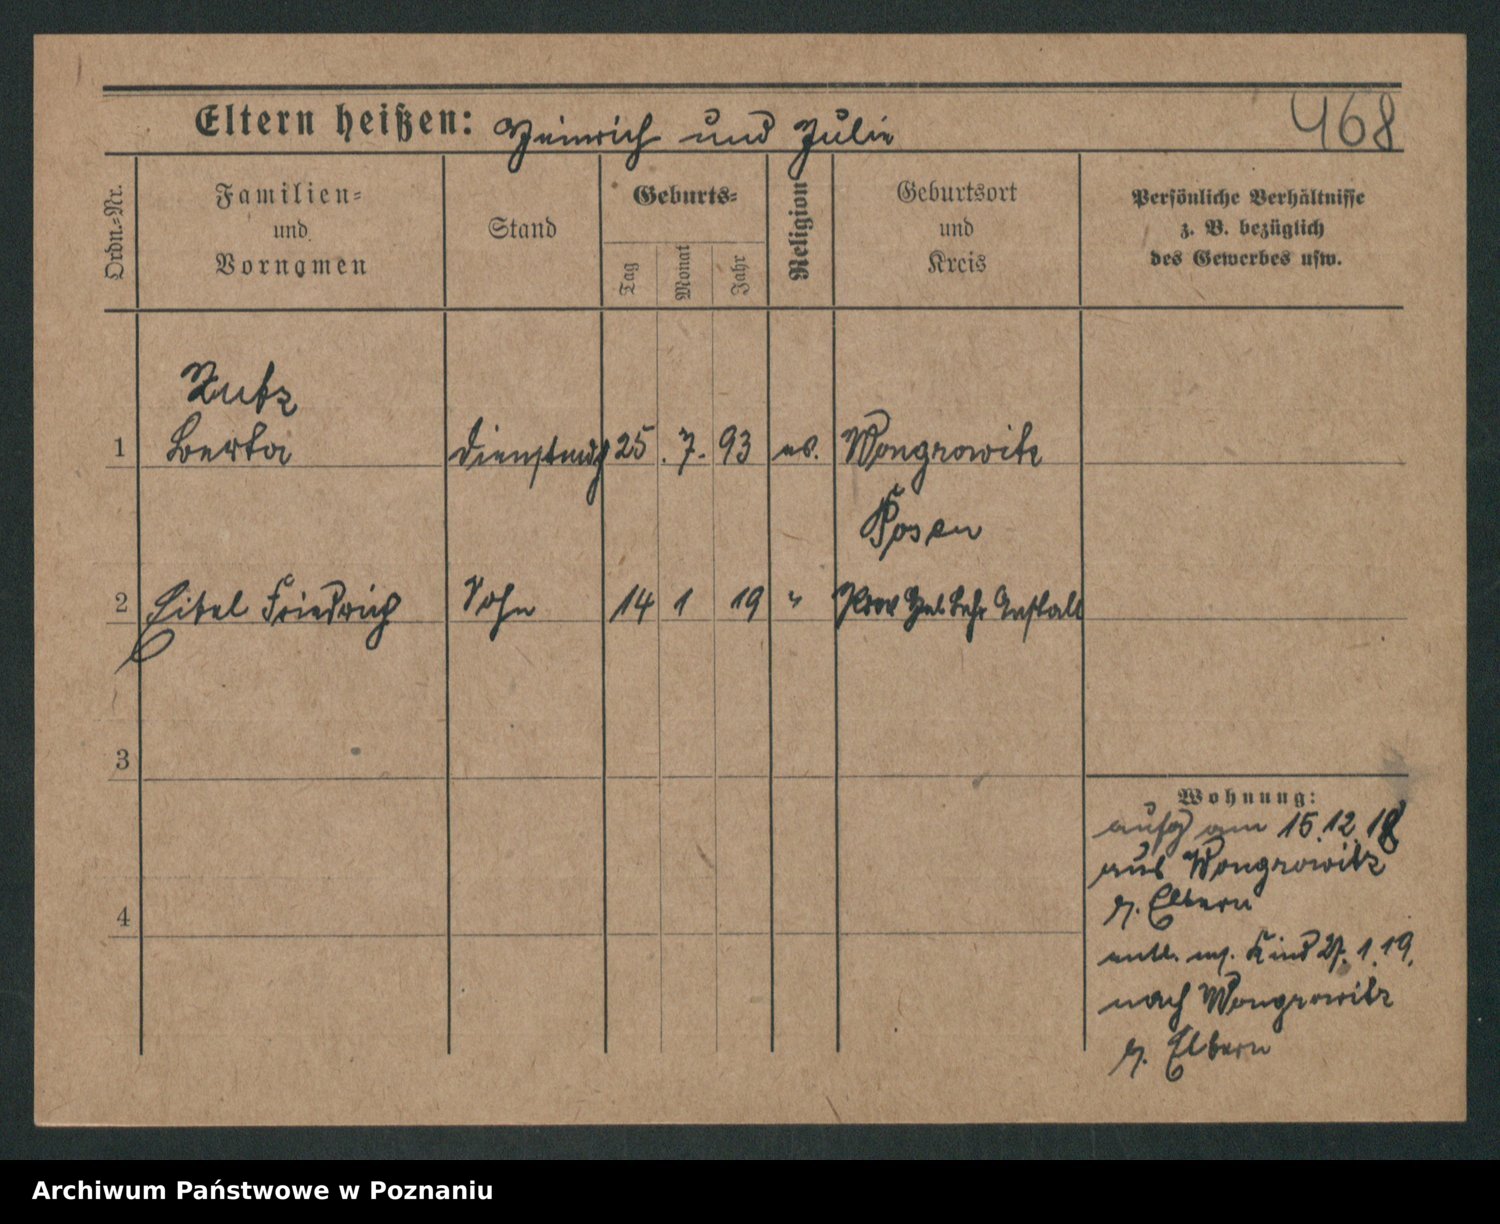 Eltern heißen: Heinrich und Julie
468
Ordn.-Nr.
Familien-
und
Vornamen
Stand
Geburts-
Tag
Monat
Jahr
Religion
Geburtsort
und
Kreis
Persönliche Verhältnisse
z. B. bezüglich
des Gewerbes usw.
1
Berta
Dienstmdch
25. 7. 93
ev.
Wongrowitz
Posen
2
Eitel Friedrich
Sohn
14 1 19
"
Prov Heb Lehr Anstalt
3
4
Wohnung:
aufg am 15.12.18
aus Wongrowitz
z. Eltern
entl. m. Kind 27.1.19.
nach Wongrowitz
z. Eltern
Archiwum Państwowe w Poznaniu